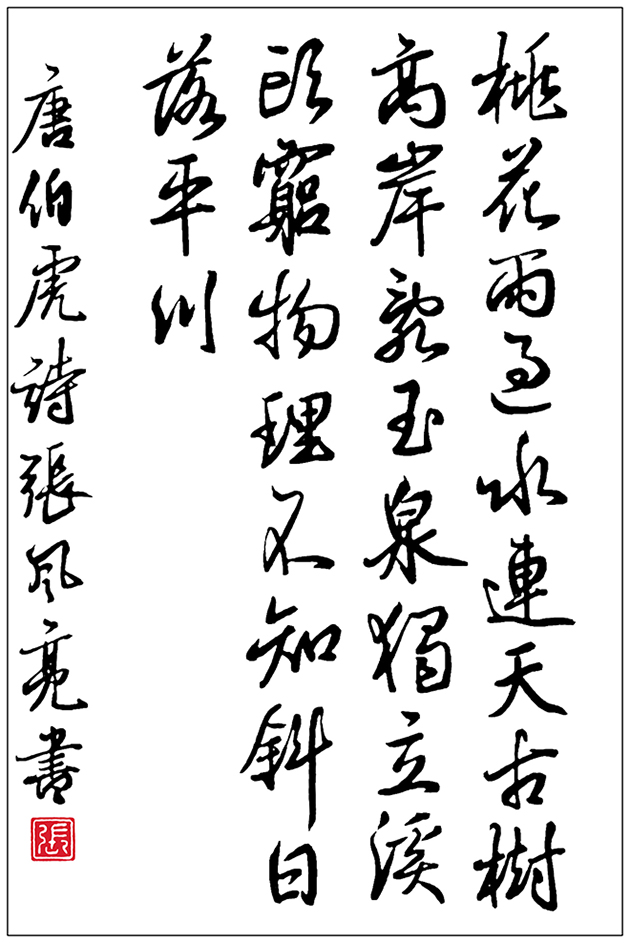 桃花雨過水連天古樹
高岸飛玉泉獨立溪
頭窮物理不知斜日
落平川
唐伯虎詩張風亮書
張